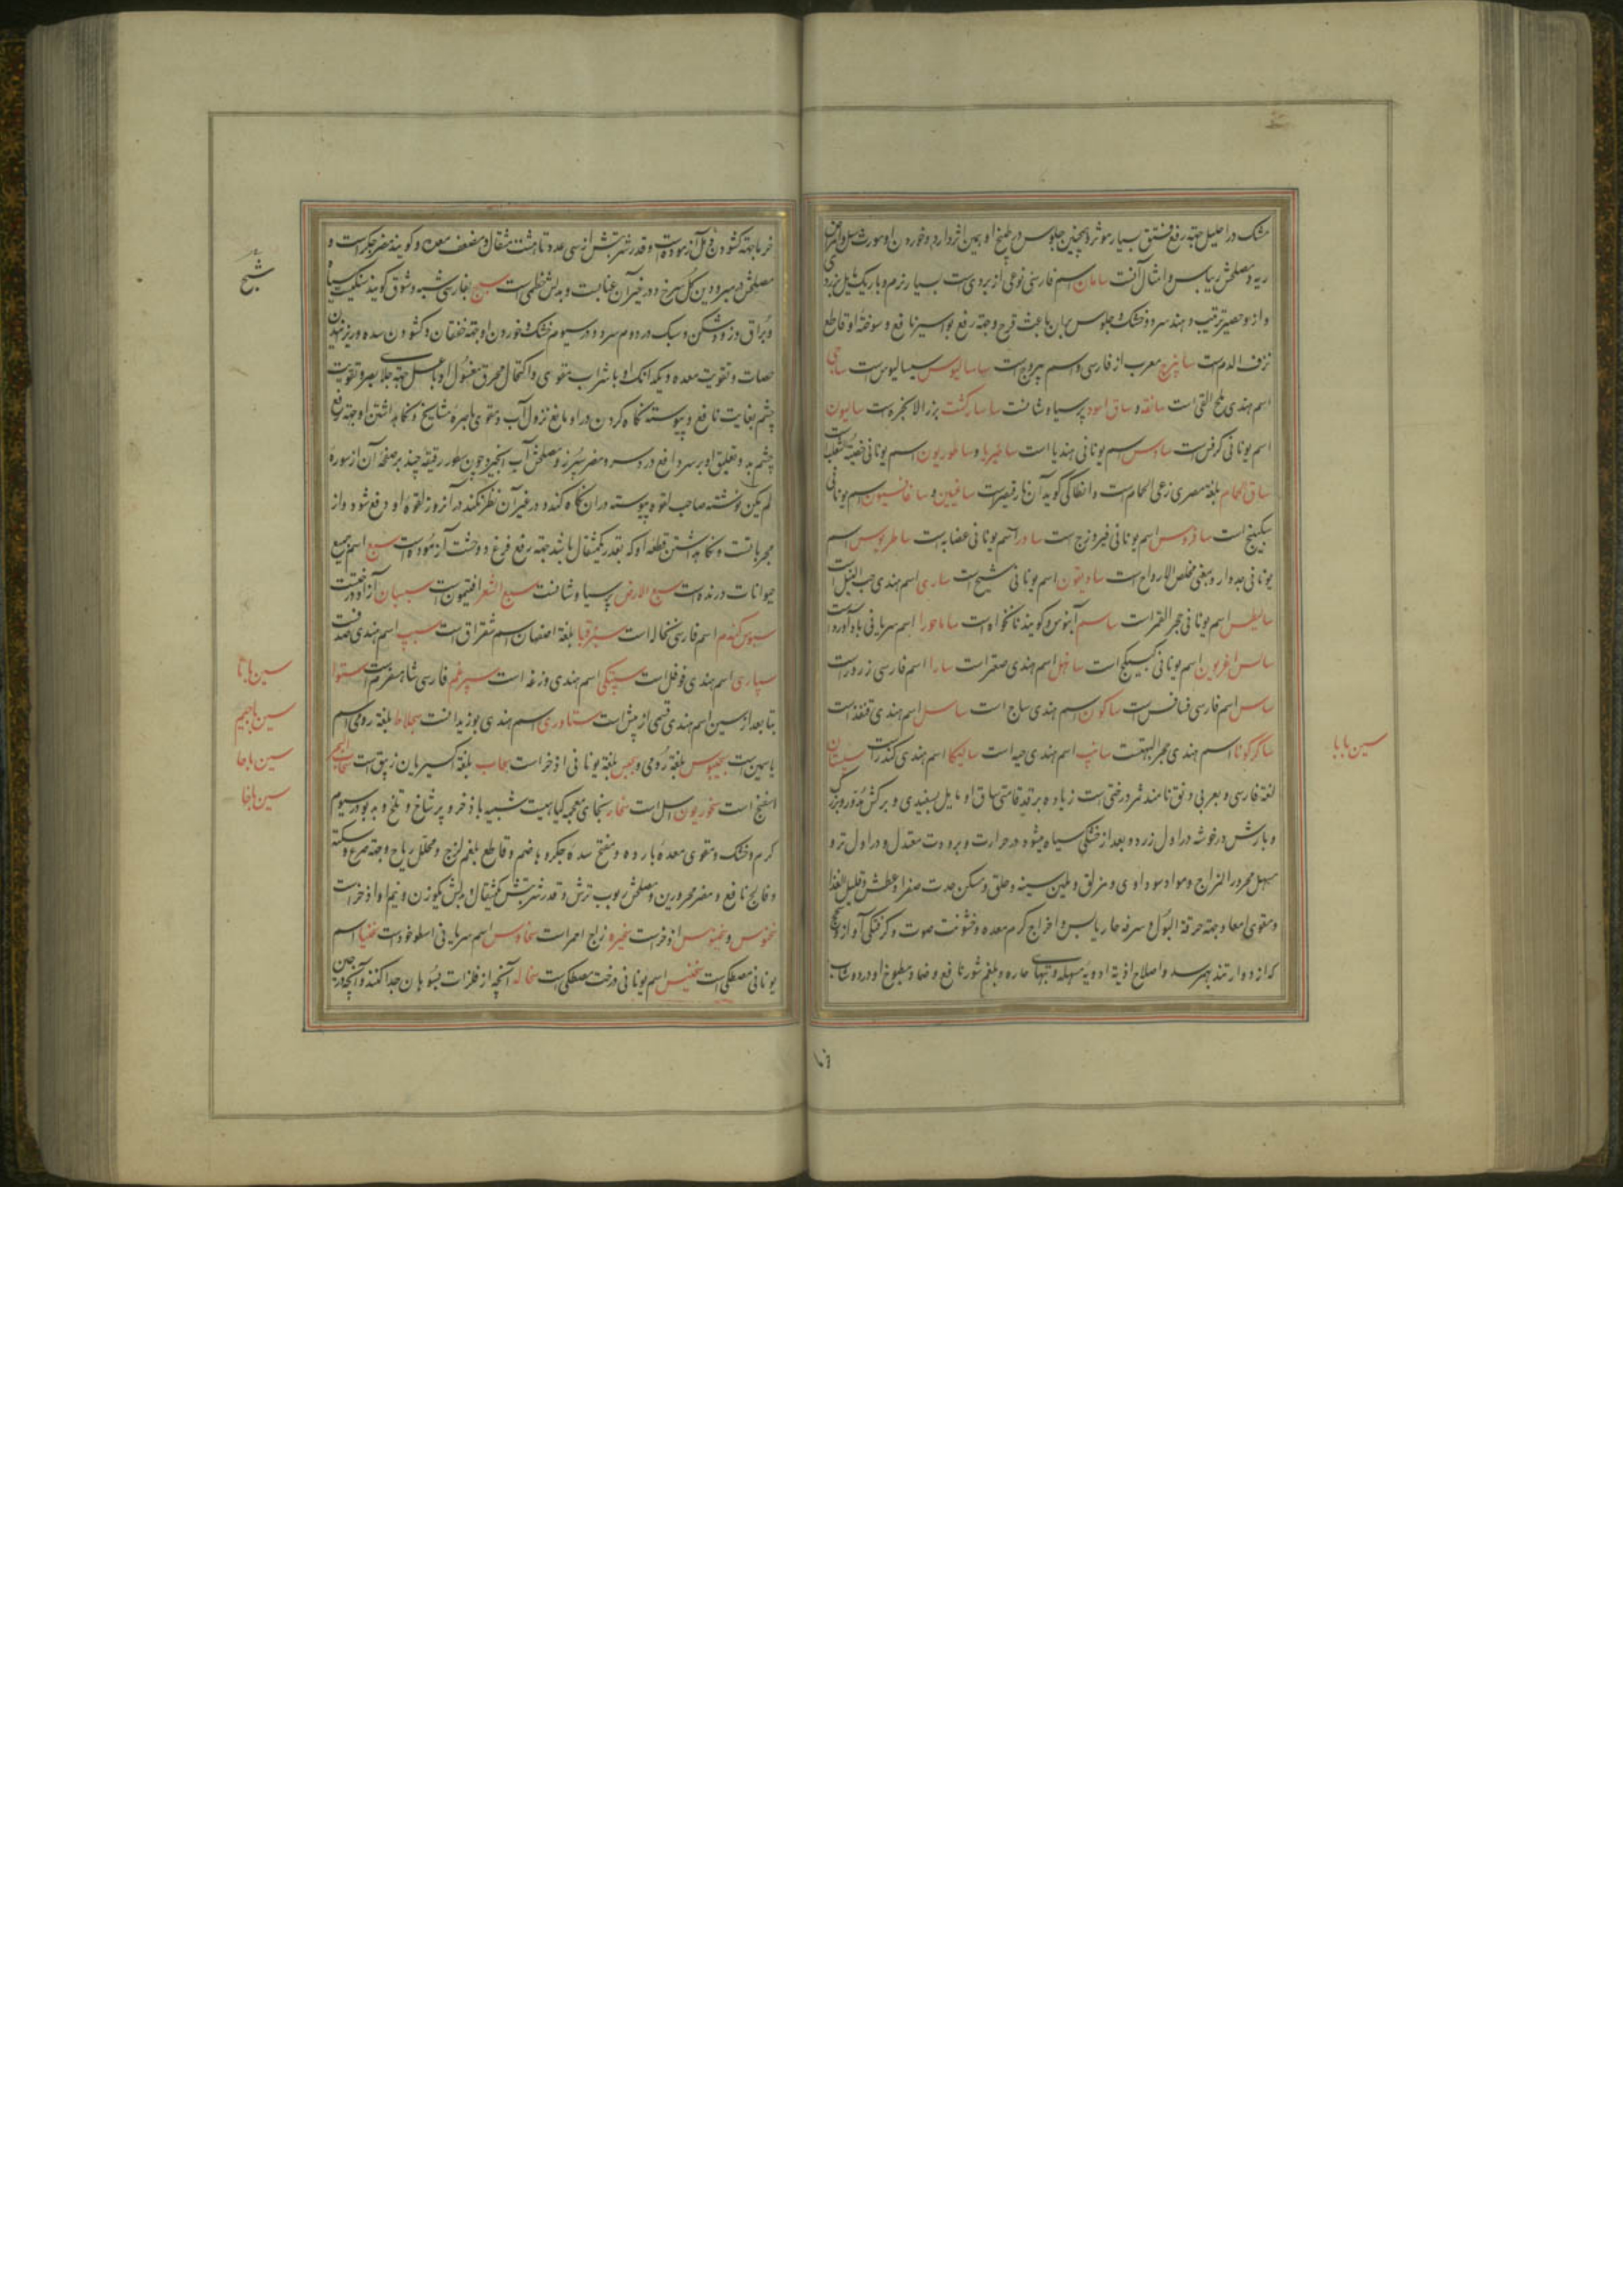 مشک در احلیل جهة رفع فتق بسیار موثر و همچنین جلوس در طبیخ او همین اثر دارد و خوردن او مورث سل و امراض
ریه و مصلحش بیاس و امثال آنست سامان اسم فارسی نوعی از بردی است بسیار نرم و باریک مایل بزردی
و از او حصیر ترتیب دهند سرد و خشک و جلوس بران باعث فرح و جهة رفع بواسیر نافع و سوختهٔ او قاطع
نزف الدم است سابیزج معرب از فارسی و اسم یبروج است ساسالیوس سیسالیوس است ساجی
اسم هندی ملح القلی است سانقه و ساق اسود پرسیاوشانست ساسارکشت بزر الانجره است سالیون
اسم یونانی کرفس است سادس اسم یونانی هندبا است ساطیریا و ساطوریون اسم یونانی خصیة الثعلب است
ساق الحمام بلغة مصری رعی الحمام است و انطاکی گوید آن نارقیصر است سافیین و سافانسیون اسم یونانی
سکبینج است سافروس اسم یونانی فیروزج است ساورا اسم یونانی عضابه است ساطریوس اسم
یونانی جدوار و بمعنی مخلص الارواح است ساویقون اسم یونانی شیح است ساری اسم هندی حب النیل است
سالیطس اسم یونانی حجر القمر است ساسم آبنوس و گویند نانخواه است ساماحورا اسم سریانی بادآورد است
سالس اغریون اسم یونانی کبیکج است ساهل اسم هندی صقر است سارا اسم فارسی زرور است
ساس اسم فارسی فسافس است ساکون اسم هندی ساج است ساسل اسم هندی قنفذ است
ساکرکوتا اسم هندی حجر البهت است سانپ اسم هندی حیه است سالیکا اسم هندی کندر است سپستان
لغة فارسی و بعربی دبق نامند ثمر درختی است زیاده بر قد قامتی ساق او مایل بسفیدی و برکش مدور و بزرک
و بارش در خوشه در اول زرد و بعد از خشکی سیاه میشود در حرارت و برودت معتدل و در اول تر و
مسهل محرور المزاج و مواد سوداوی و مزلق و ملین سینه و حلق و مسکن حدت صفرا و عطش و قلیل الغذا
و مقوی امعا و جهة حرقة البول و سرفه حار یابس و اخراج کرم معده و خشونت صوت و گرفتگی آواز و سحج
که از دوا ر تند بهم رسد و اصلاح اذیة ادویهٔ مسهله و تبهای حاره و بلغم شور نافع و ضماد مطبوخ او در دوشاب
سین با با
خرما جهة کشودن دمل آزموده است و قدر شربتش از سی عدد تا هشت مثقال و مضعف معده و گویند مضر جگر است و
مصلحش در مبرودین گل سرخ و در غیر آن عناب است و بدلش خطمی است سبج بفارسی شبه و شوق گویند سنگیست سیاه
و براق و زود شکن و سبک در دوم سرد و در سیوم خشک و خوردن او جهة خفقان و کشودن سده و ریزنیدن
حصات و تقویت معده و یک دانک او با شراب مقوی و اکتحال محرق مغسول او با عسل جهة جلای بصر و تقویت
چشم بغایت نافع و پیوسته نگاه کردن در او مانع نزول آب و مقوی باصرهٔ مشایخ و نگاهداشتن او جهة رفع
چشم بد و تعلیق او بر سر دافع درد سر و مضر سپرز و مصلحش آب انجیر و چون سطور رقیقهٔ چند بر صفحهٔ آن از سورهٔ
لم یکن نوشته صاحب لقوه پیوسته در آن نگاه کند و در غیر آن نظر نکند در آنروز لقوهٔ او رفع شود و از
مجرباتست و نگاهداشتن قطعه او که بقدر یکمثقال باشد جهة رفع فزع و وحشت آزموده است سبع اسم جمیع
حیوانات درنده است سبع الارض پرسیاوشانست سبع الشعرا افتیمون است سبسبان آزاد درختست
سبوس گندم اسم فارسی نخاله است سبزقبا بلغة اصفهان اسم شقراق است سیپ اسم هندی صدفست
سپاری اسم هندی فوفل است سپتکی اسم هندی وزغه است سپرغم فارسی شاهسفرم است ستوا
بتا بعد از سین اسم هندی قسمی از بیش است ستاوری اسم هندی بوزیدانست سجلاط بلغة رومی اسم
یاسمین است سجیبوس بلغة رومی و سجس بلغة یونانی اذخر است سحاب بلغة اکسیریان زیبق است سحاب البحر
اسفنج است سخوریون اسل است سخابر بخای معجمه گیاهیست شبیه باذخر و پر شاخ و تلخ و بدبو در سیوم
گرم و خشک و مقوی معدهٔ بارده و مفتح سدهٔ جگر و هاضم و قاطع بلغم لزج و محلل ریاح و جهة صرع و سکته
و فالج نافع و مضر محرورین و مصلحش ربوب ترش و قدر شربتش یکمثقال و بدلش یکوزن و نیم او اذخر است
سخنوس و سخینوس اذخر است سخیره زاج احمر است سخاوس اسم سریانی اسطوخودس است سخنیا اسم
یونانی مصطکی است سخنیس اسم یونانی درخت مصطکی است سخاله آنچه از فلزات بسوهان جدا کنند و آنچه در حین
سبج
سین با تا
سین با جیم
سین با حا
سین با خا